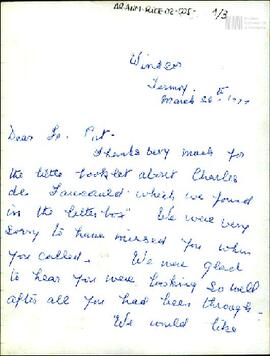 1/3
Windsor
March 26th
Dear Fr. Pat -
Thanks very much for
the little booklet about Charles
de Foucauld which we found
in the "letter-box" We were very
sorry to have missed you when
you called. We were glad
to hear you were looking so well
after all you had been through -
We would like